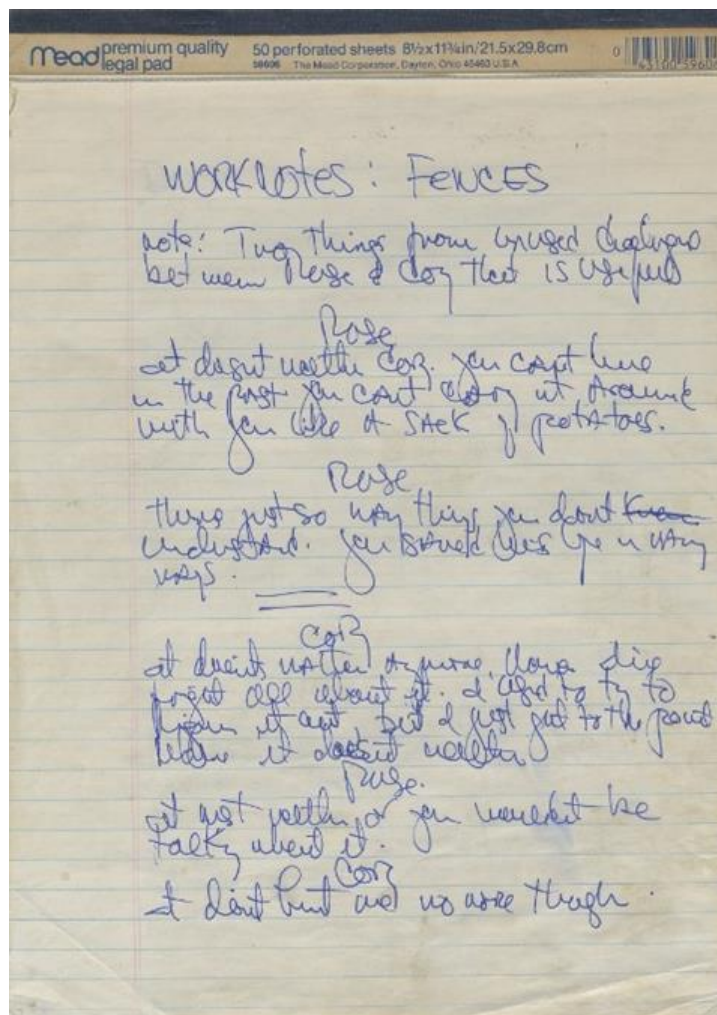 Mead premium quality
legal pad
50 perforated sheets 8½x11¾in/21.5x29.8cm
59606 The Mead Corporation, Dayton, Ohio 45463 U.S.A.
0 43100 59606
WORKNOTES: FENCES
note: Two things from unused dialogue
between Rose & Cory that is useful
Rose
it doesn't matter Cory. You can't live
in the past you can't carry it around
with you like a sack of potatoes.
Rose
theres just so many things you don't
understand. You life in many
ways.
Cory
it doesn't matter anymore.
forget all about it. I used to try to
figure it out, but I just got to the point
where it doesn't matter
Rose.
it must matter or you wouldn't be
talking about it.
Cory
it don't hurt me no more though.